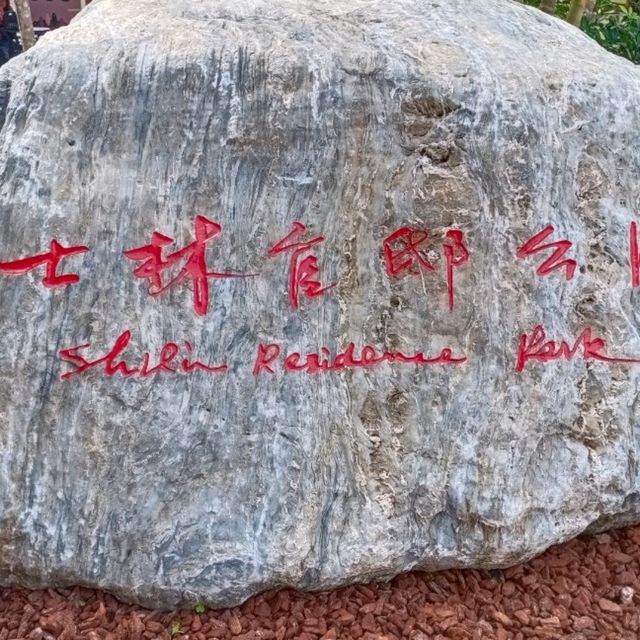 士林官邸公
Shilin Residence Park